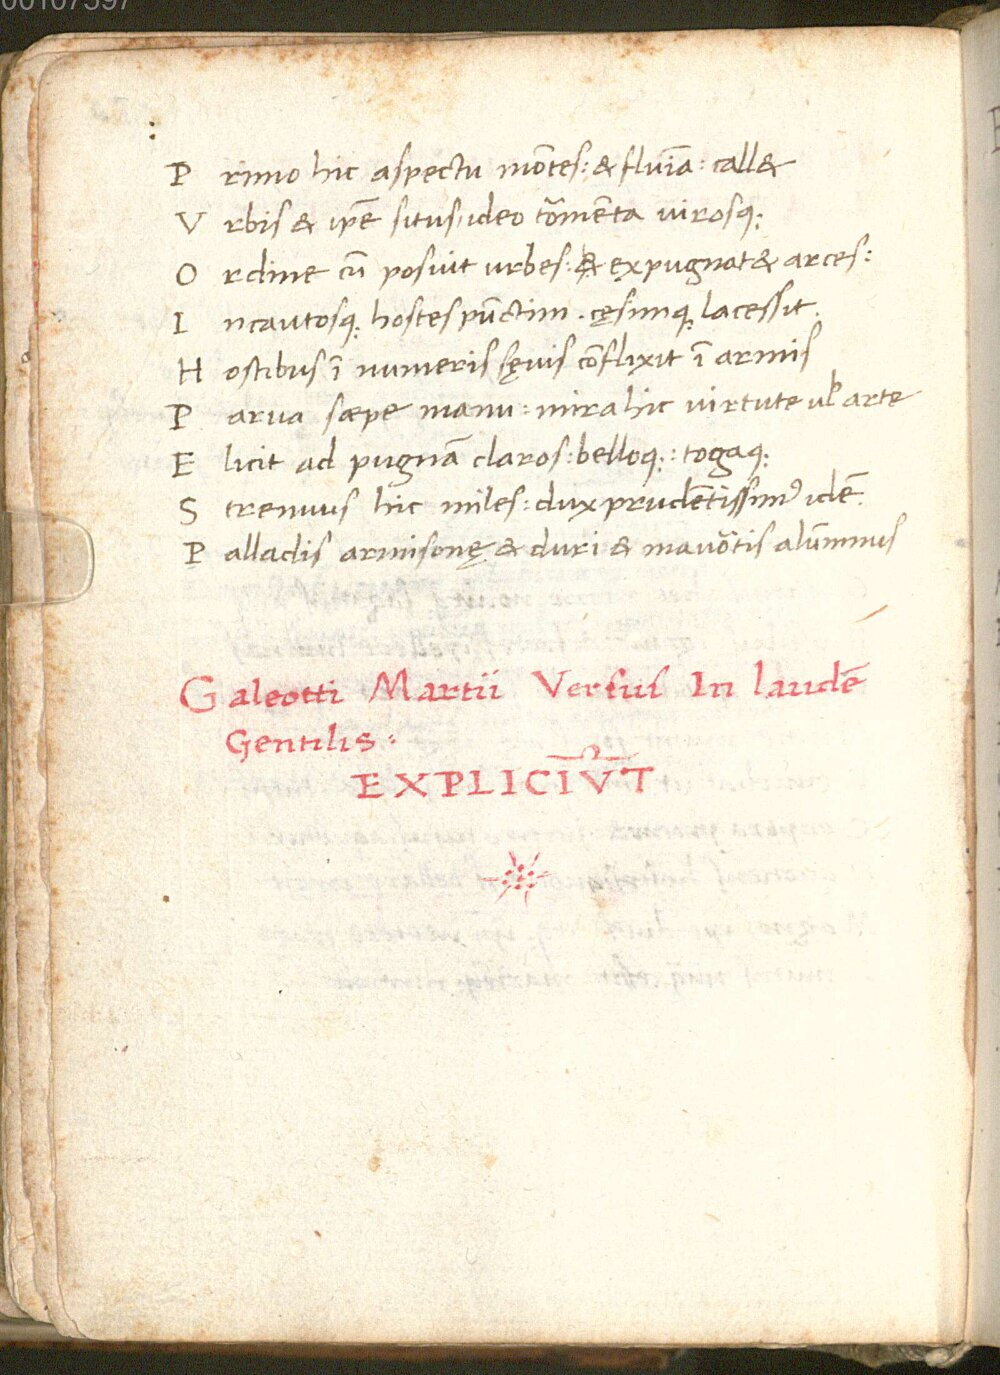 P rimo hic aspectu mōtes: & fluīa: call&
V rbis & ip̄e situs: ideo tōmēta virosq;
O rdine cū posuit urbes: & expugnat & arces:
I ncautosq; hostes pūctim. cęsimq; lacessit.
H ostibus ī numeris sęuis cōflixit ī armis
P arua sæpe manu: mira hic virtute ul̄ arte
E licit ad pugnā claros: belloq;: togaq;
S trenuus hic miles: dux prudētissimꝰ idē.
P alladis armisonę & duri & mauōtis alūmnus
Galeotti Martii Versus In laudē
Gentilis:
EXPLICIV̄T